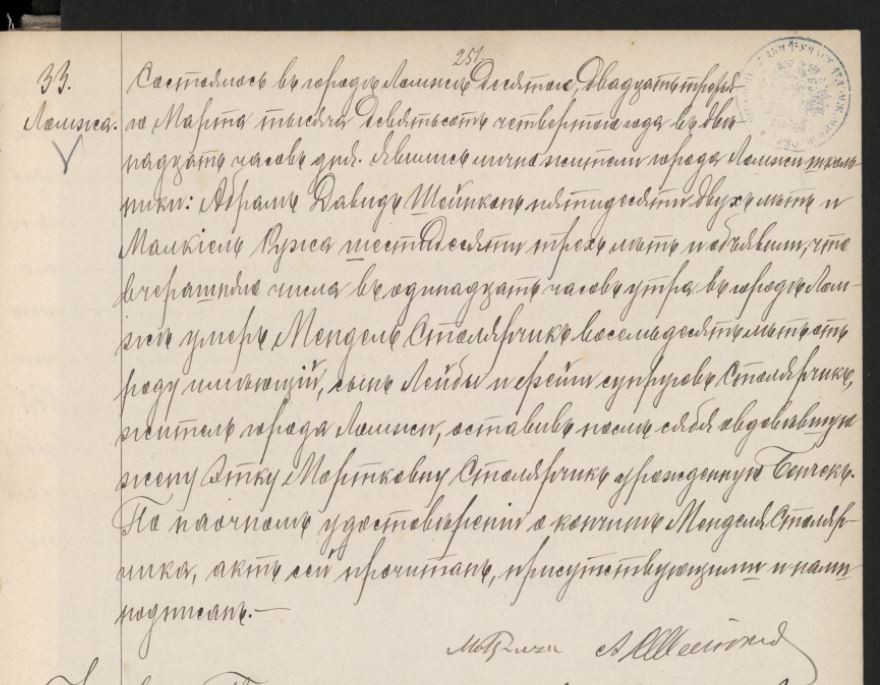 251
33.
Ломжа.
Состоялось въ городѣ Ломжѣ Десятаго, Двадцать третья-
го Марта тысяча Девятьсотъ четвертого года въ две-
надцать часовъ дня. Явились лично жители города Ломжи школь-
ники: Абрамъ Давидъ Шейнкопъ пятидесяти двухъ лѣтъ и
Малкіель Ружа шестидесяти трехъ лѣтъ и объявили, что
вчерашняго числа въ одинадцать часовъ утра въ городѣ Лом-
жѣ умеръ Мендель Столярчикъ восемьдесятъ лѣтъ отъ
роду имѣющій, сынъ Лейбы и Фейги супруговъ Столярчикъ,
житель города Ломжи, оставивъ послѣ себя овдовѣвшую
жену Этку Мортковну Столярчикъ урожденную
По наочномъ удостовѣреніи о кончинѣ Менделя Столяр-
чика, актъ сей прочитанъ, присутствующими и нами
подписанъ.—